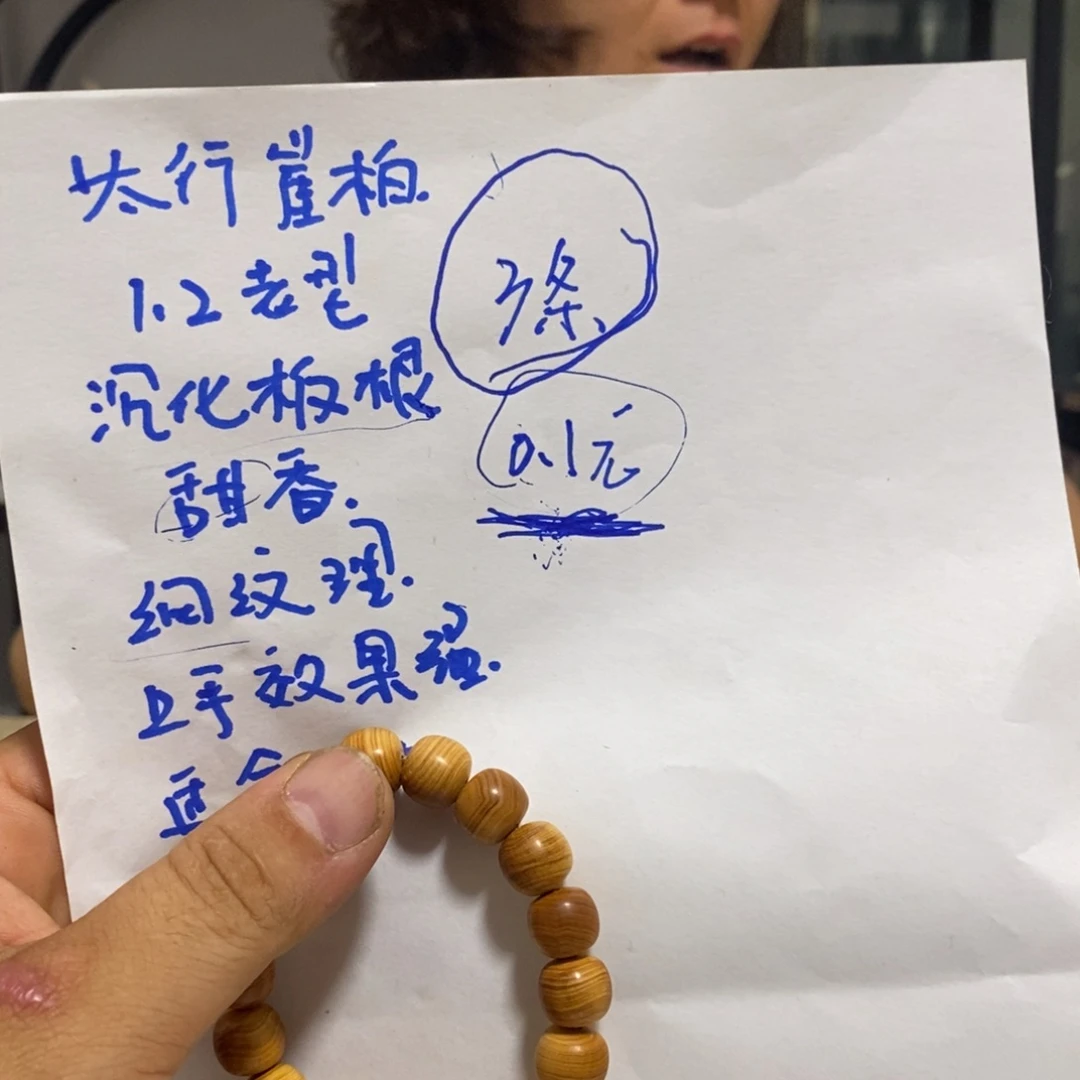 太行崖柏.
1.2老型
沉化板根
甜香.
细纹理.
上手效果强.
3条.
0.1元